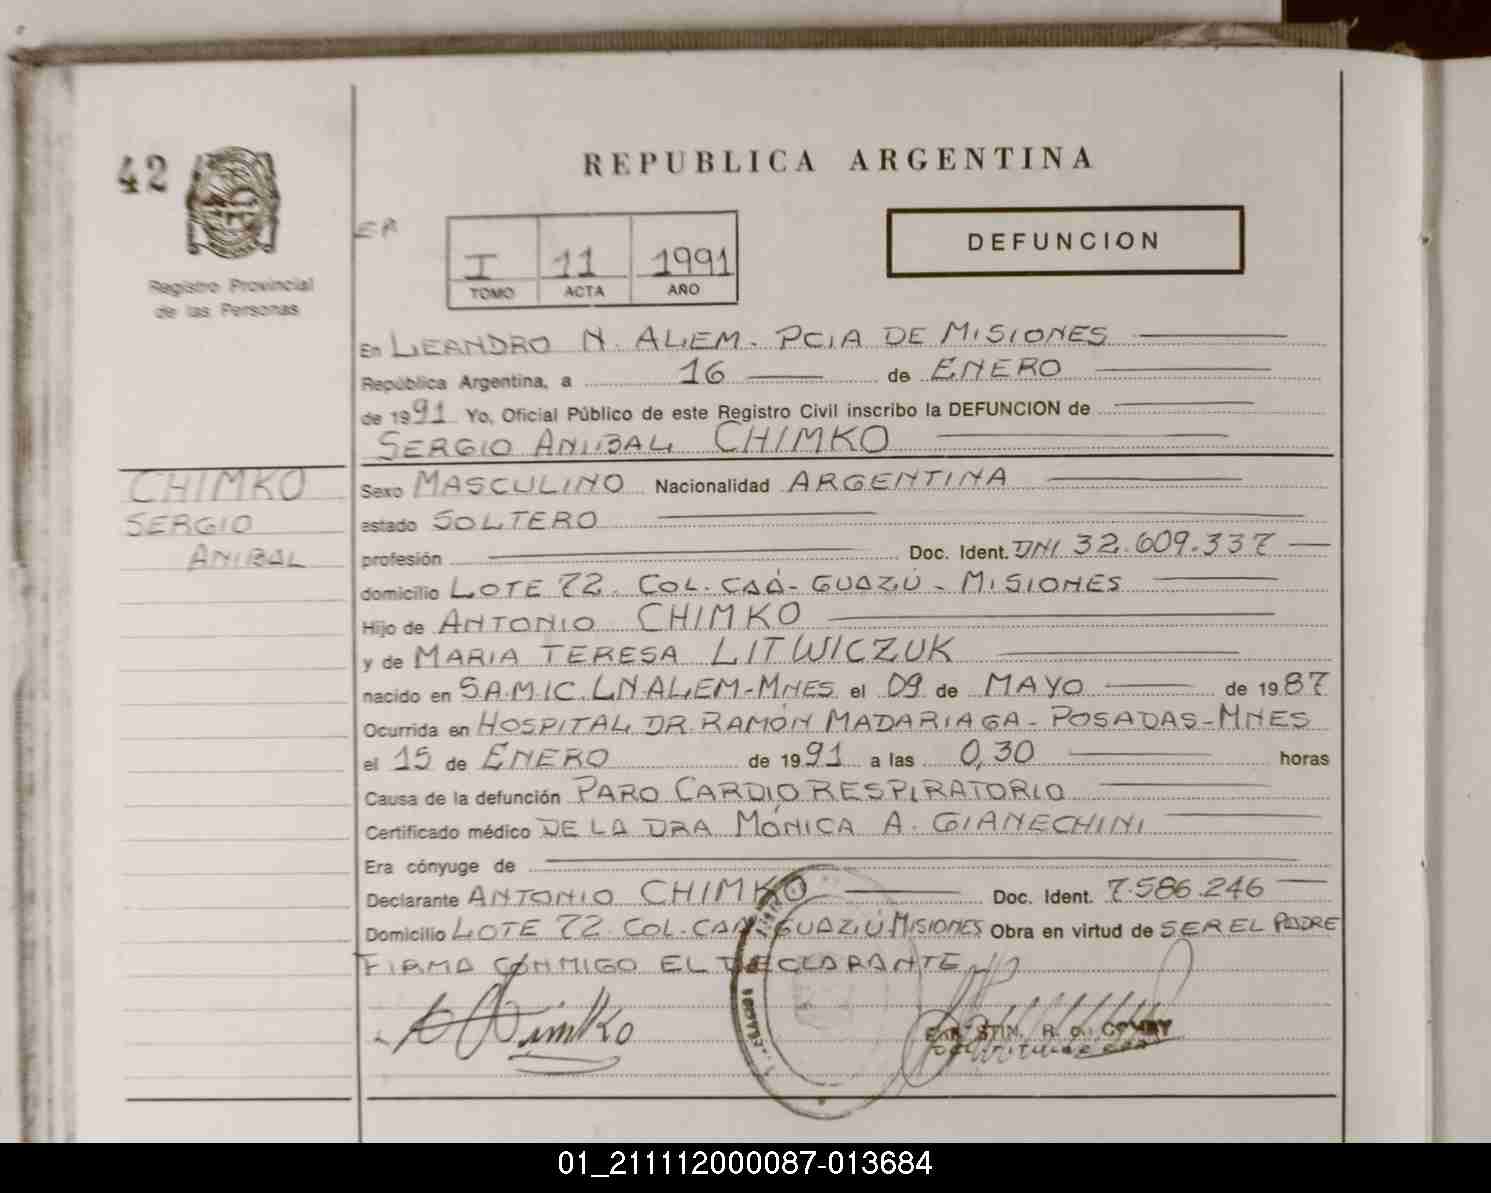 42
REPUBLICA ARGENTINA
DEFUNCION
I 11 1991
TOMO ACTA AÑO
Registro Provincial
de las Personas
En LEANDRO N. ALEM. PCIA DE MISIONES
República Argentina, a 16 de ENERO
de 1991 Yo, Oficial Público de este Registro Civil inscribo la DEFUNCION de
SERGIO ANIBAL CHIMKO
CHIMKO
SERGIO
ANIBAL
Sexo MASCULINO Nacionalidad ARGENTINA
estado SOLTERO
profesión Doc. Ident. DNI 32.609.337
domicilio LOTE 72. COL. CAÁ-GUAZÚ - MISIONES
Hijo de ANTONIO CHIMKO
y de MARIA TERESA LITWICZUK
nacido en S.A.M.I.C. L.N.ALEM-MNES el 09 de MAYO de 1987
Ocurrida en HOSPITAL DR. RAMÓN MADARIAGA - POSADAS - MNES
el 15 de ENERO de 1991 a las 0,30 horas
Causa de la defunción PARO CARDIO RESPIRATORIO
Certificado médico DE LA DRA MÓNICA A. GIANECHINI
Era cónyuge de
Declarante ANTONIO CHIMKO Doc. Ident. 7.586.246
Domicilio LOTE 72. COL. CAÁ-GUAZÚ MISIONES Obra en virtud de SER EL PADRE
FIRMA CONMIGO EL DECLARANTE
A Chimko
01_211112000087-013684